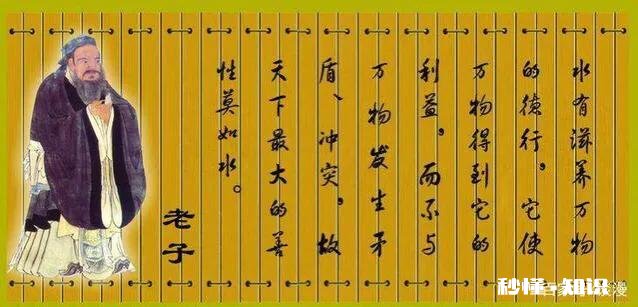 水有滋养万物
的德行，它使
万物得到它的
利益，而不与
万物发生矛
盾、冲突，故
天下最大的善
性莫如水。
老子
秒懂·知识